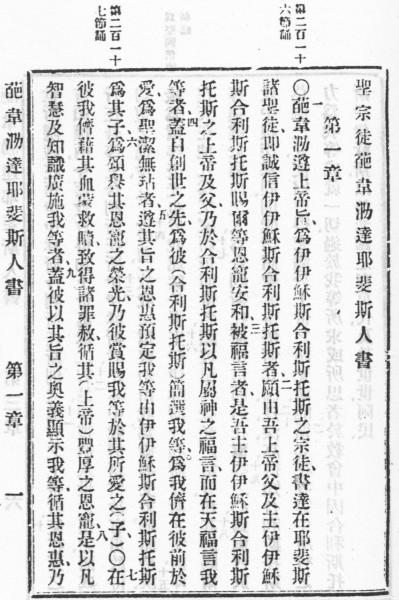 第二百一十
六節誦
第二百一十
七節誦
聖宗徒葩韋泐達耶斐斯人書
第一章
○一葩韋泐遵上帝旨、爲伊伊穌斯合利斯托斯之宗徒、書達在耶斐斯
諸聖徒、即誠信伊伊穌斯合利斯托斯者、二願由吾上帝父及主伊伊穌
斯合利斯托斯賜爾等恩寵安和、三被福言者是吾主伊伊穌斯合利斯
托斯之上帝及父、乃於合利斯托斯以凡屬神之福言、而在天福言我
等者、四蓋自創世之先、爲彼(合利斯托斯)簡選我等、爲我儕在彼前於
愛爲聖潔無玷者、五遵其旨之恩惠預定我等由伊伊穌斯合利斯托斯
爲其子、六爲頌譽其恩寵之榮光、乃彼賞賜我等於其所愛之(子)○七在
彼我儕藉其血蒙救贖、致得諸罪赦、循其(上帝)豐厚之恩寵、八是以凡
智慧及知識廣施我等者、九蓋彼以其旨之奧義顯示我等、循其恩惠、乃
葩韋泐達耶斐斯人書 第一章 一